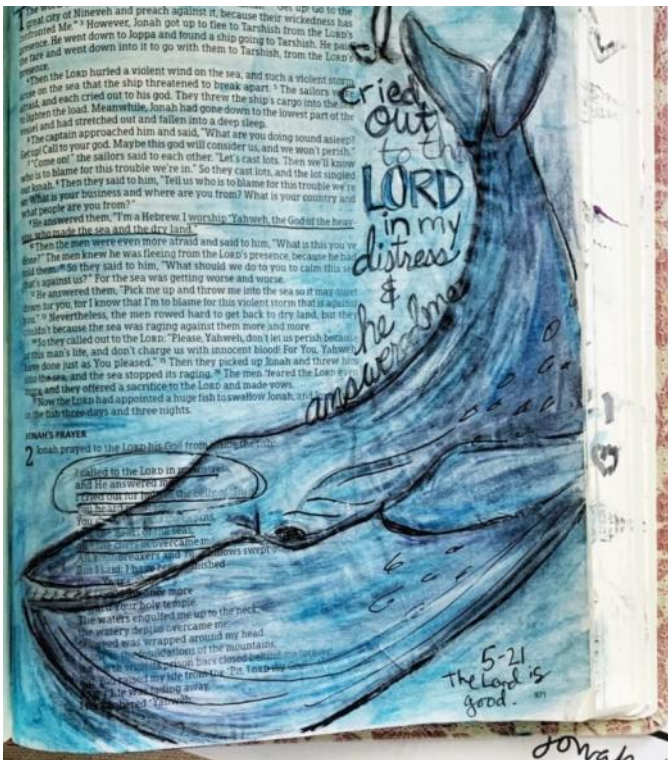 The word
great city of Nineveh and preach against it, because their wickedness has
confronted Me." ³ However, Jonah got up to flee to Tarshish from the LORD's
presence. He went down to Joppa and found a ship going to Tarshish. He paid
the fare and went down into it to go with them to Tarshish, from the LORD's
presence.
⁴ Then the LORD hurled a violent wind on the sea, and such a violent storm
arose on the sea that the ship threatened to break apart. ⁵ The sailors were
afraid, and each cried out to his god. They threw the ship's cargo into the sea
to lighten the load. Meanwhile, Jonah had gone down to the lowest part of the
vessel and had stretched out and fallen into a deep sleep.
⁶ The captain approached him and said, "What are you doing sound asleep?
Get up! Call to your god. Maybe this god will consider us, and we won't perish."
⁷ "Come on!" the sailors said to each other. "Let's cast lots. Then we'll know
who is to blame for this trouble we're in." So they cast lots, and the lot singled
out Jonah. ⁸ Then they said to him, "Tell us who is to blame for this trouble we're
in. What is your business and where are you from? What is your country and
what people are you from?"
⁹ He answered them, "I'm a Hebrew. I worship Yahweh, the God of the heav-
ens, who made the sea and the dry land."
¹⁰ Then the men were even more afraid and said to him, "What is this you've
done?" The men knew he was fleeing from the LORD's presence, because he had
told them. ¹¹ So they said to him, "What should we do to you to calm this sea
that's against us?" For the sea was getting worse and worse.
¹² He answered them, "Pick me up and throw me into the sea so it may quiet
down for you, for I know that I'm to blame for this violent storm that is against
you." ¹³ Nevertheless, the men rowed hard to get back to dry land, but they
couldn't because the sea was raging against them more and more.
¹⁴ So they called out to the LORD: "Please, Yahweh, don't let us perish because
of this man's life, and don't charge us with innocent blood! For You, Yahweh,
have done just as You pleased." ¹⁵ Then they picked up Jonah and threw him
into the sea, and the sea stopped its raging. ¹⁶ The men feared the LORD even
more, and they offered a sacrifice to the LORD and made vows.
¹⁷ Now the LORD had appointed a huge fish to swallow Jonah, and
in the fish three days and three nights.
JONAH'S PRAYER
2 Jonah prayed to the LORD his God from inside the fish:
I called to the LORD in my distress,
and He answered me.
I cried out for help in the belly of
overcame me
breakers and swept
But I said: I have been banished
once more
toward Your holy temple.
The waters engulfed me up to the neck;
the watery depths overcame me;
seaweed was wrapped around my head.
foundations of the mountains;
prison bars closed behind me forever!
raised my life from the Pit, LORD my God!
life was fading away,
remembered Yahweh.
I
cried
out
to the
LORD
in my
distress
&
he
answered me
5-21
The Lord is
good.
971
Jonah